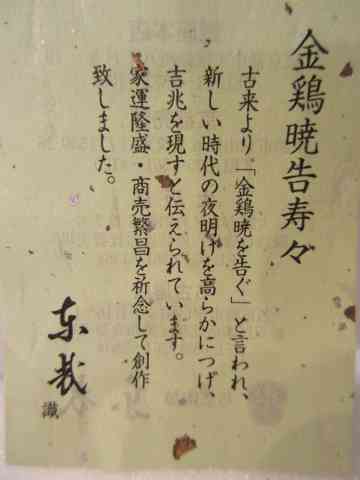 金鶏暁告寿々
古来より「金鶏暁を告ぐ」と言われ、
新しい時代の夜明けを高らかにつげ、
吉兆を現すと伝えられています。
家運隆盛・商売繁昌を祈念して創作
致しました。
識